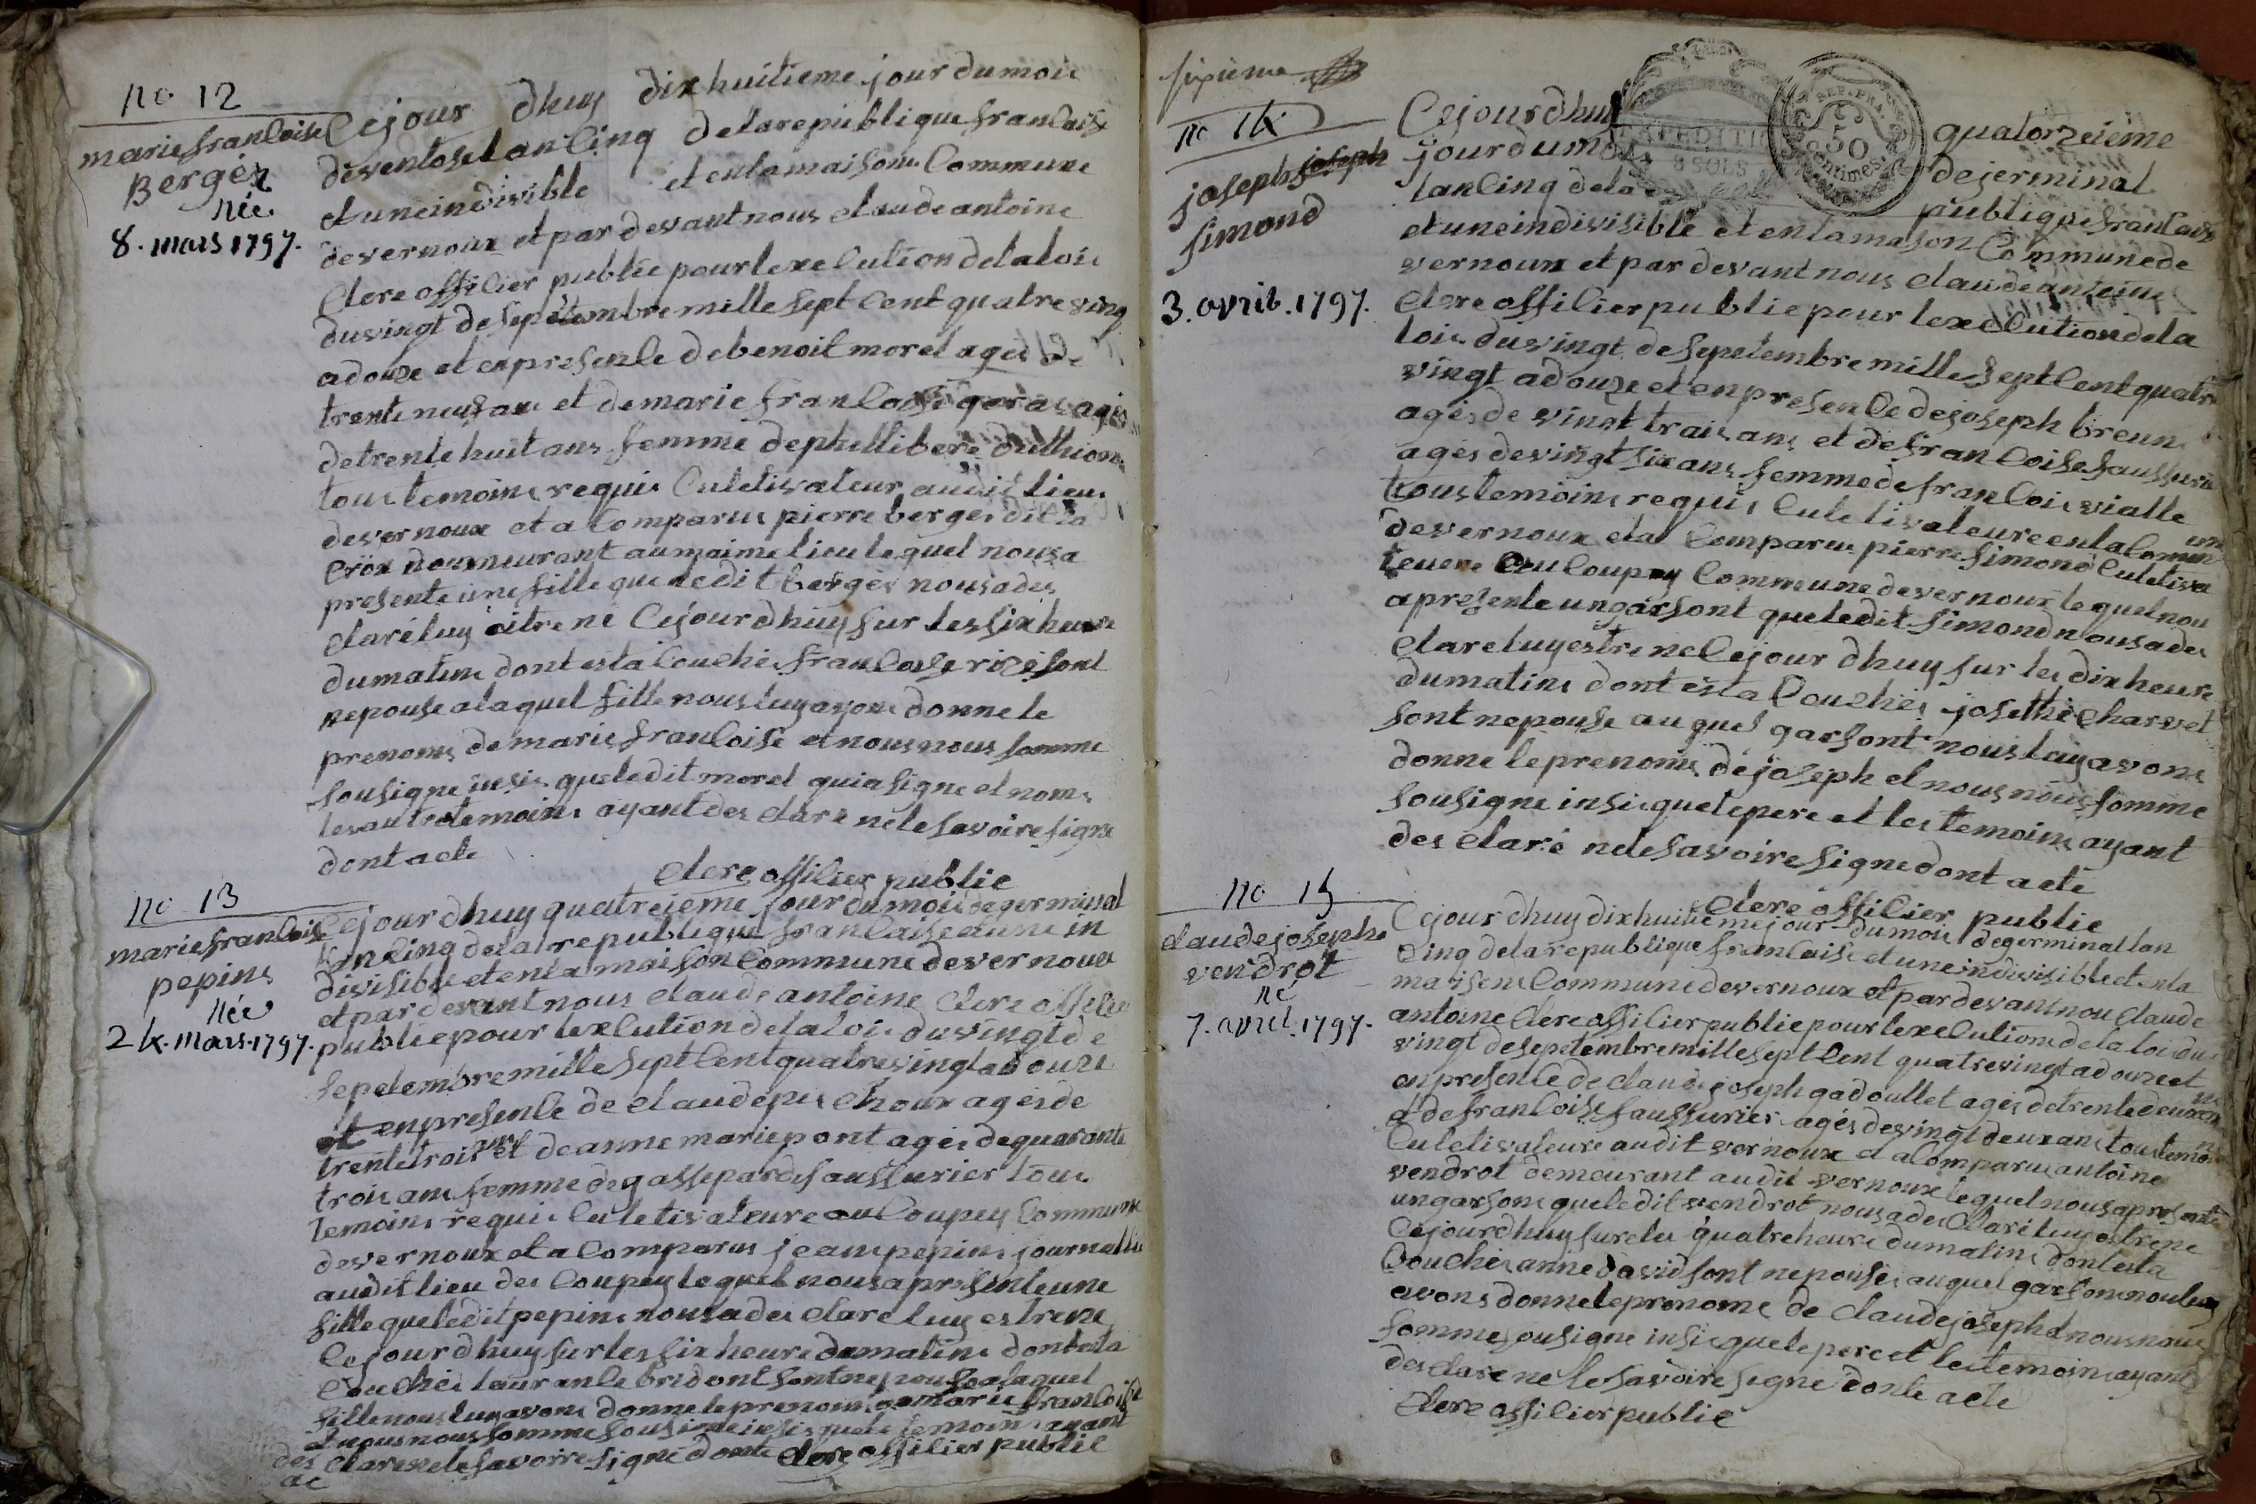 no 12
marie franCoise
Bergér
née
8. mars 1797.
Cejour dhuy dixhuitieme jour du mois
deventose lan Cinq dela republique franCaise
et une indivisible et enla maisons Commune
devernoux et par devant nous claude antoine
Clere offiCier publie pour lexeCution delaloie
duvingt de sepetembre mille sept Cent quatre ving
adouze et enpresenCe de benoit morel ages de
trente neuf ans et de marie franCoise agés
detrente huit ans femme de phellibere
tous temoins requis Culetivateur audit lieu
devernoux et a Comparus pierre berges dit la
Croix doumeurant au maime lieu lequel nousa
presente une fille que ledit bergés nousades
claré luy aitre né Cejourdhuy sur les six heure
dumatins dont esta CouChée franCoise
nepouse alaquel fille nous luy avons donne le
prenoms de marie franCoise et nous nous somme
sousigne insis que ledit morel quia signe et nom
les autre temoins ayant des clare nele savoire signe
dont acte
Clere offiCier publie
no 13
marie franCoise
pepins
née
24. mars. 1797.
Cejour dhuy quatrejeme jour du mois degerminal
lan Cinq dela republique franCaise et une in
divisible et enla maison Commune devernoux
et par devant nous claude antoine Clere offiCie
publie pour lexeCution delaloie duvingt de
sepetembre mille sept Cent quatre vingt adouze
et enpresenCe de claude Choux agés de
trente trois ans et de anne marie pont agés dequarante
trois ans femme de gassepard saussurier tous
temoins requis Culetivateure au Coupey Commune
devernoux et a Comparus jean pepins journallie
audit lieu des Coupey lequel nousa presente une
fille que ledit pepins nousades claré luy estre ne
Cejour dhuy sur les six heure dumatins dont esta
CouChée bridont sont nepouse alaquel
fille nous luy avons donne le prenoms de marie franCoise
et nous nous somme sousigne insis que le temoins ayant
des clare nele savoire signé donte Clere offiCier publie
ac
sixieme
no 14
joseph joseph
simond
3. avrib. 1797.
Cejourdhuy quatorzeieme
jourdumois dejerminal
lanCinq dela publique franCaise
EXPEDITION
8 SOLS
REP. FRA.
50
Centimes.
et une indivisible et enla mason Commune de
vernoux et par devant nous claude antoine
Clere offiCier publie pour lexeCution dela
loie duvingt de sepetembre mille sept Cent quatre
vingt adouze et en presenCe de joseph breune
agés de vingt trais ans et de franCoise saussurie
agés devingt six ans femme de franCois vialle
tous temoins requis Culetivateure enla Comune
devernoux et a Comparus pierre simond Culetiva
teure au Coupey Commune devernoux lequel nou
apresente ungarsont que ledit simond nousades
clare luy estre ne Cejour dhuy sur les dix heure
dumatins dont esta CouChés josethe Charvet
sont nepouse au quel garsont nous luy avons
donne le prenoms de joseph et nous nous somme
sousigne insis que le pere et les temoins ayant
des claré nele savoire signe dont acte
Clere offiCier publie
no 15
claude joseph
vendrot
né
7. avril. 1797.
Cejour dhuy dixhuitiemejour dumois degerminal lan
Cinq dela republique franCaise et une indivisible et enla
maisons Commune devernoux et par devant nou claude
antoine Clere offiCier publie pour lexeCutions dela loi du
vingt de sepetembre mille sept Cent quatre vingt adouze et
enpresenCe de claude joseph gadoullet agés detrente deux ans
et de franCoise saussuries agés devingt deux ans tous temoin
Culetivateure audit vernoux et a Comparus antoine
vendrot demeurant audit vernoux lequel nousapresente
un garsons que ledit vendrot nousades Claré luy estre ne
Cejourdhuy sur les quatre heure dumatins dont esta
CouChés anne david sont nepouse auquel garsons nou luy
avons donne le prenoms de claude joseph et nous nous
somme sousigne insis que le pere et les temoins ayant
des clare ne le savoire signe dont acte
Clere offiCier publie